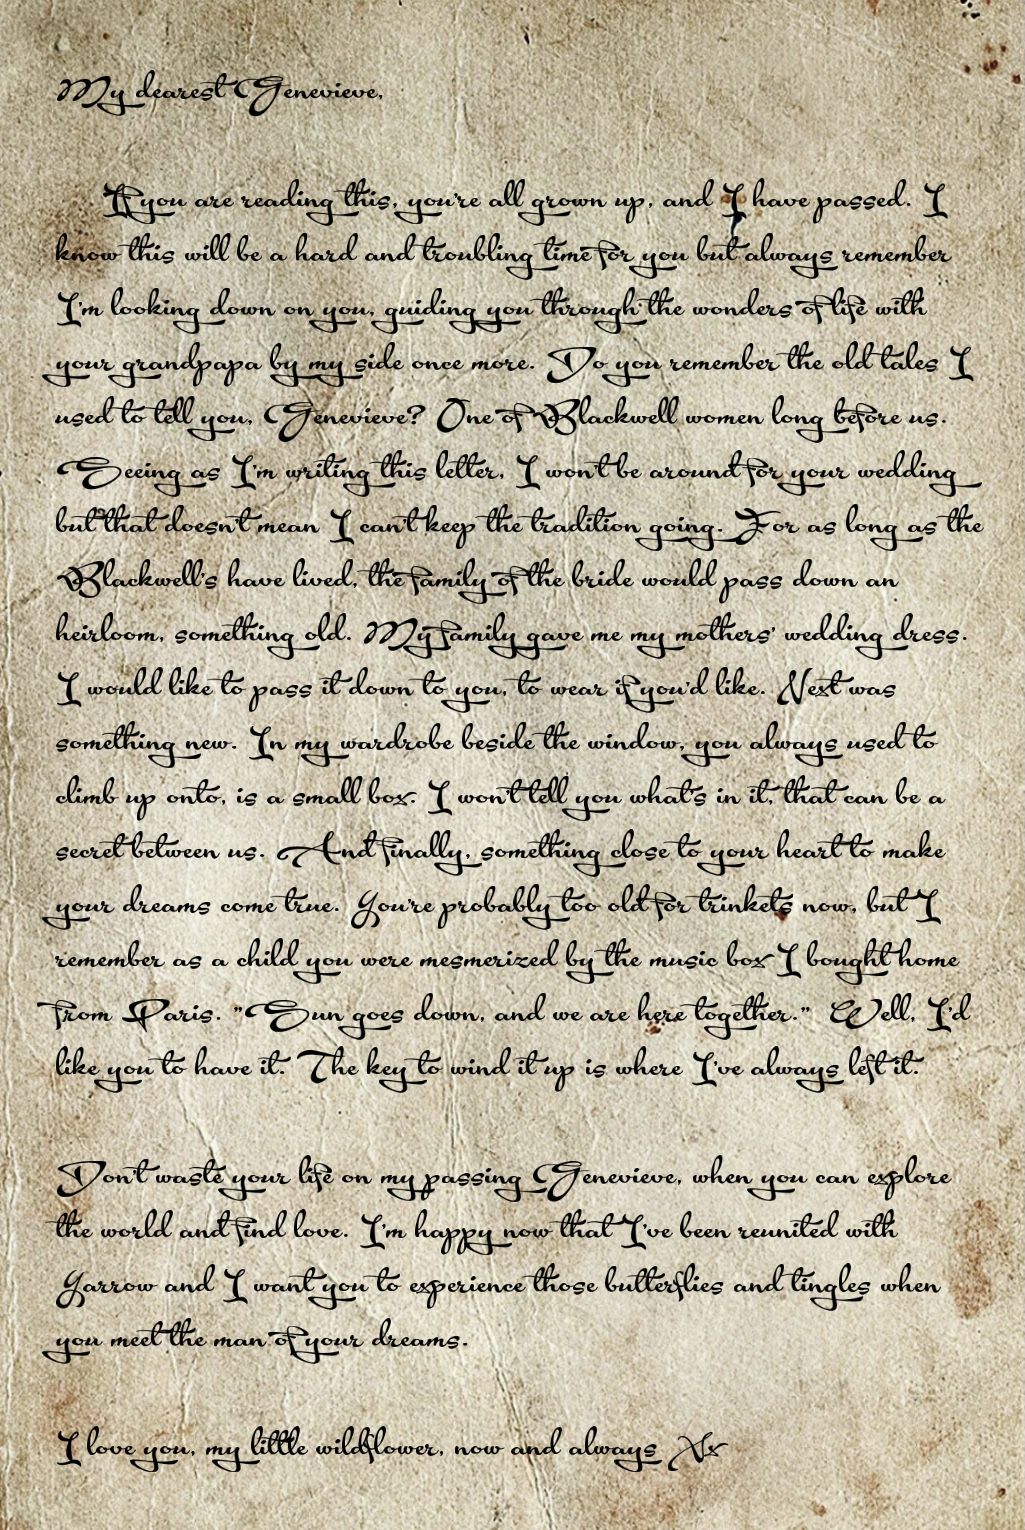 My dearest Genevieve,
If you are reading this, you're all grown up, and I have passed. I
know this will be a hard and troubling time for you but always remember
I'm looking down on you, guiding you through the wonders of life with
your grandpapa by my side once more. Do you remember the old tales I
used to tell you, Genevieve? One of Blackwell women long before us.
Seeing as I'm writing this letter, I won't be around for your wedding
but that doesn't mean I can't keep the tradition going. For as long as the
Blackwell's have lived, the family of the bride would pass down an
heirloom, something old. My family gave me my mothers' wedding dress.
I would like to pass it down to you, to wear if you'd like. Next was
something new. In my wardrobe beside the window, you always used to
climb up onto, is a small box. I won't tell you what's in it, that can be a
secret between us. And finally, something close to your heart to make
your dreams come true. You're probably too old for trinkets now, but I
remember as a child you were mesmerized by the music box I bought home
from Paris. "Sun goes down, and we are here together." Well, I'd
like you to have it. The key to wind it up is where I've always left it.
Don't waste your life on my passing Genevieve, when you can explore
the world and find love. I'm happy now that I've been reunited with
Yarrow and I want you to experience those butterflies and tingles when
you meet the man of your dreams.
I love you, my little wildflower, now and always Xx